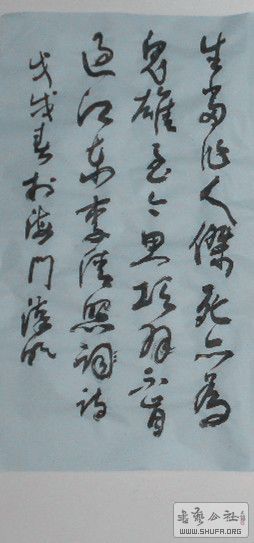 生当作人傑死亦為
鬼雄至今思項羽不肯
過江東李清照詞诗
戊戌春於海門
书艺公社
WWW.SHUFA.ORG